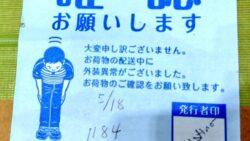 お願いします
大変申し訳ございません。
お荷物の配送中に
外装異常がございました。
お荷物のご確認をお願い致します。
5/18
1184
発行者印